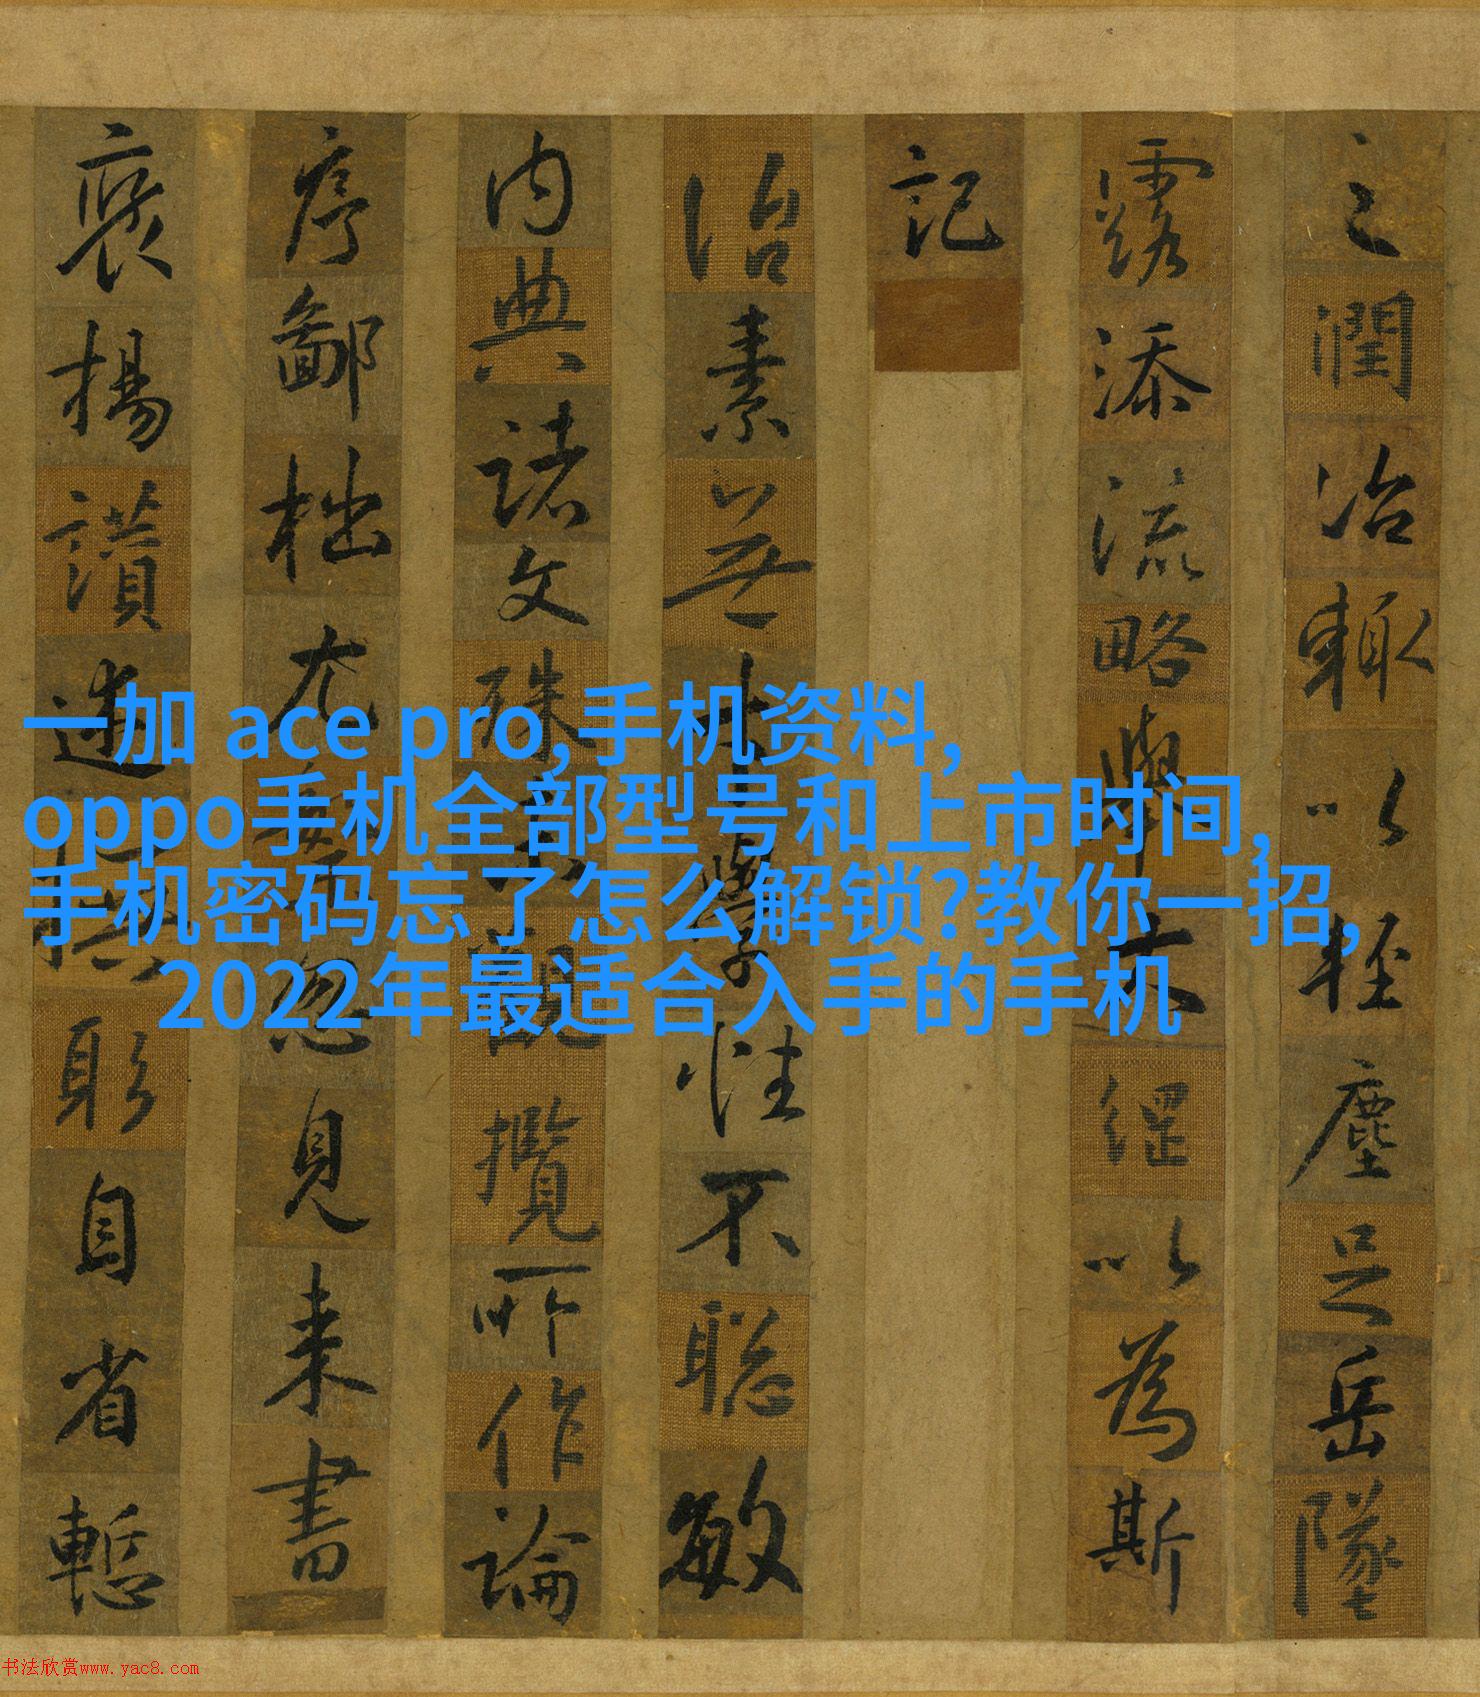 之潤治輒以輕塵足岳墜
露添流略舉大綱以為斯
記
治素無才學性不聰敏
內典諸文殊未觀攬所作論
序鄙拙尤繁忽見来書
褒揚讚述撫躬自省慙
一加 ace pro,手机资料,
oppo手机全部型号和上市时间,
手机密码忘了怎么解锁?教你一招,
2022年最适合入手的手机
书法欣赏www.yac8.com